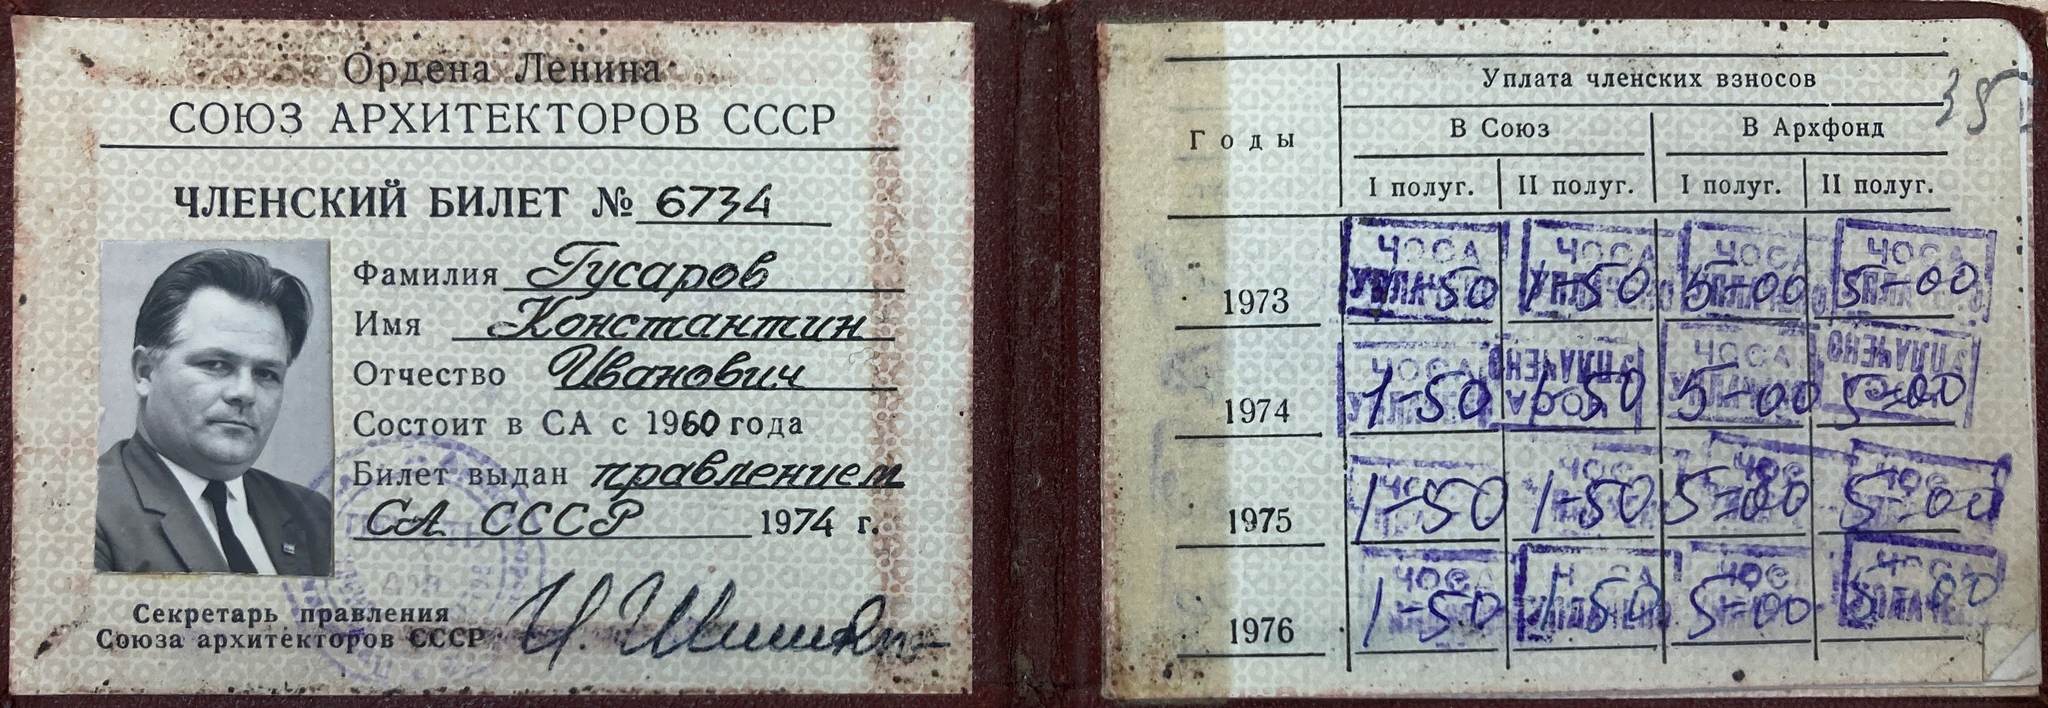 Ордена Ленина
СОЮЗ АРХИТЕКТОРОВ СССР
ЧЛЕНСКИЙ БИЛЕТ № 6734
Фамилия Гусаров
Имя Константин
Отчество Иванович
Состоит в СА с 1960 года
Билет выдан правлением
СА СССР 1974 г.
Секретарь правления
Союза архитекторов СССР
Уплата членских взносов
Годы В Союз В Архфонд
I полуг. II полуг. I полуг. II полуг.
ЧОСА ЧОСА ЧОСА ЧОСА
1973 1-50 1-50 5-00 5-00
ЧОСА УПЛАЧЕНО ЧОСА УПЛАЧЕНО
1974 1-50 1-50 5-00 5-00
1975 1-50 1-50 5-00 5-00
ЧОСА ЧОСА
1976 1-50 1-50 5-00 5-00
УПЛАЧЕНО